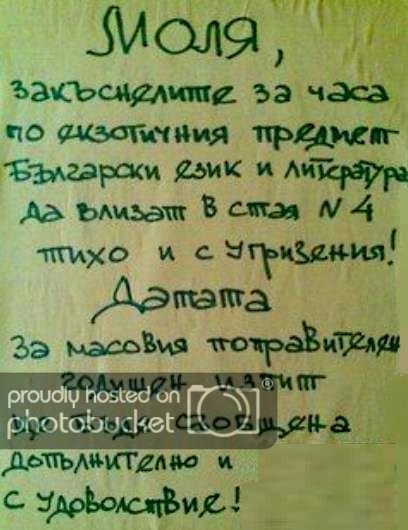 Моля,
закъснелите за часа
по екзотичния предмет
Български език и литература
да влизат в стая N 4
тихо и с угризения!
Датата
за масовия поправителен
годишен изпит
proudly hosted on
photobucket
ще бъде съобщена
допълнително и
с удоволствие!